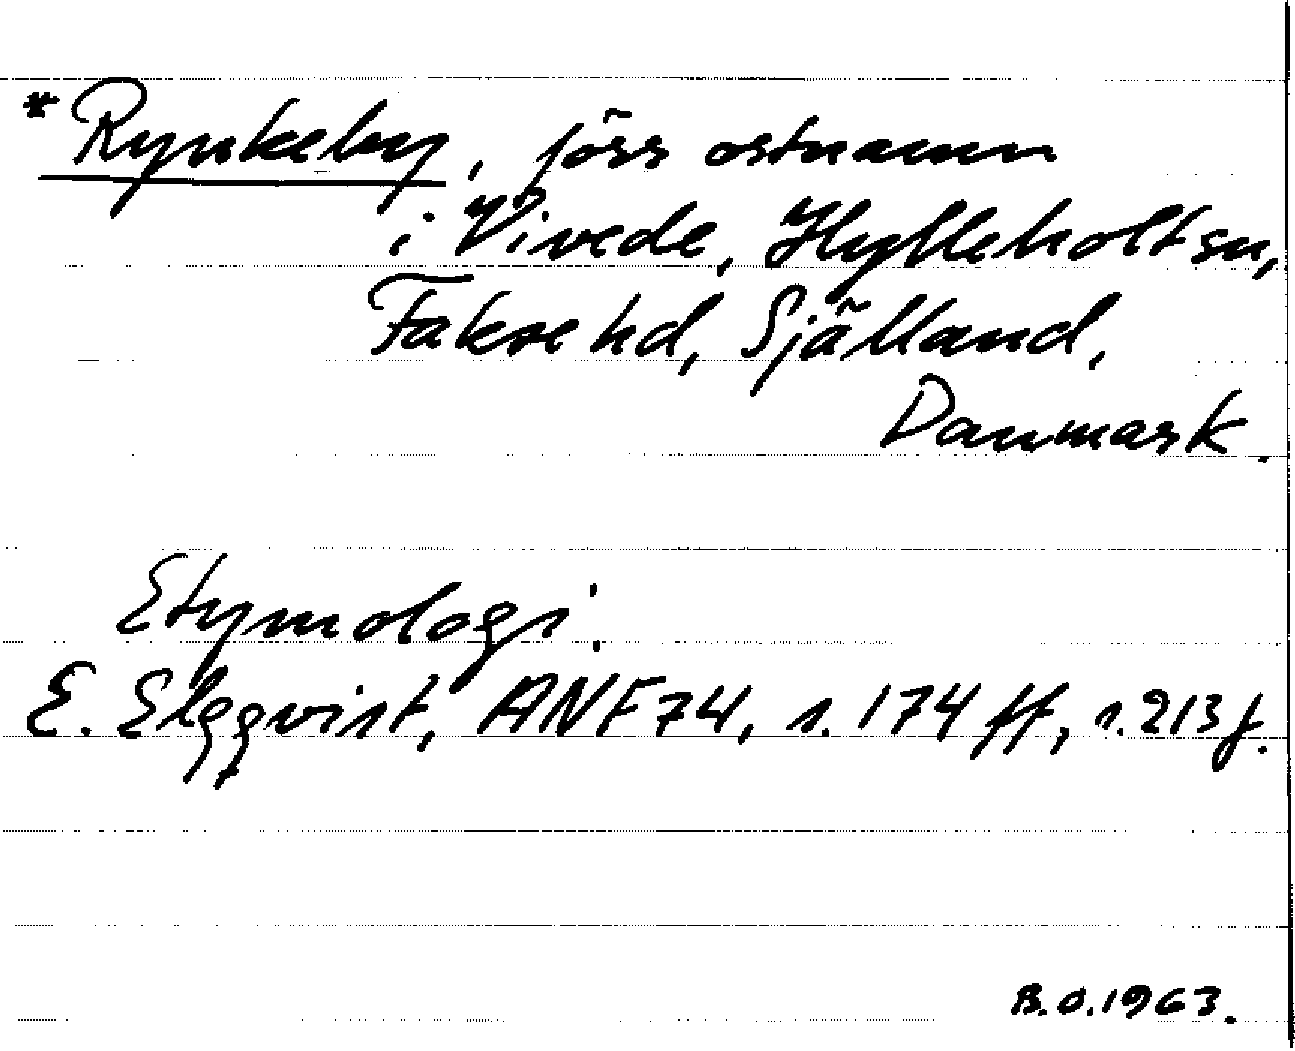 *Rynkeby, förs ortnamn
i Vivede, Hylleholt sn,
Fakse hd, Själland,
Danmark.
Etymologi.
E. Elgqvist, ANF 74, s. 174 ff, s. 213 f.
B.O. 1963.